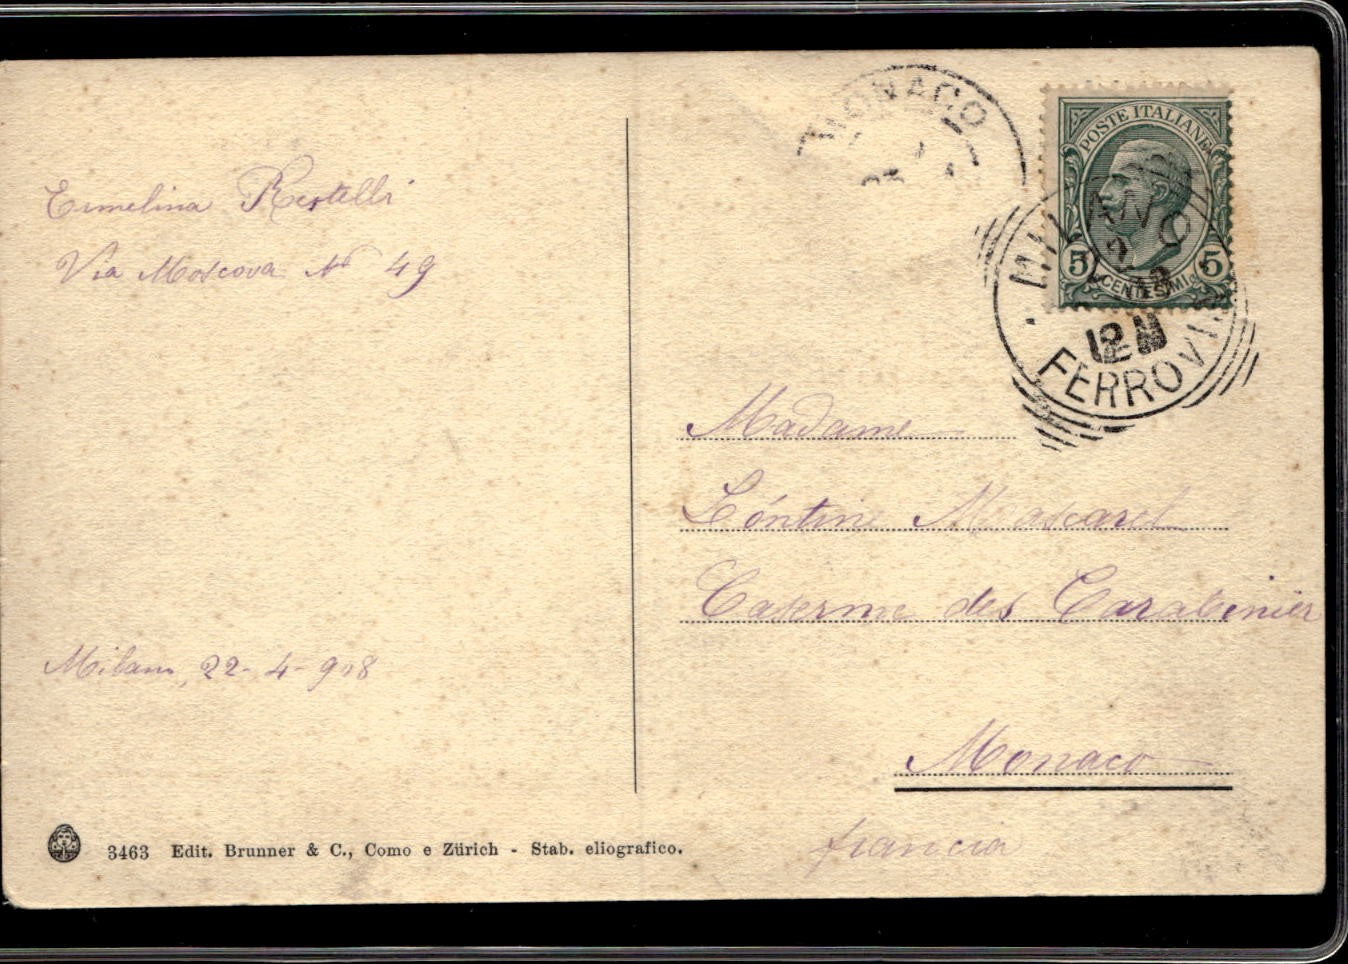 Ermelina Restelli
Via Moscova No 49
Milano, 22-4-908
3463 Edit. Brunner & C., Como e Zürich - Stab. eliografico.
MONACO
POSTE ITALIANE
5 CENTESIMI 5
MILANO
12 M
FERROVIA
Madame
Léontine Mascarel
Caserme des Carabinier
Monaco
francia